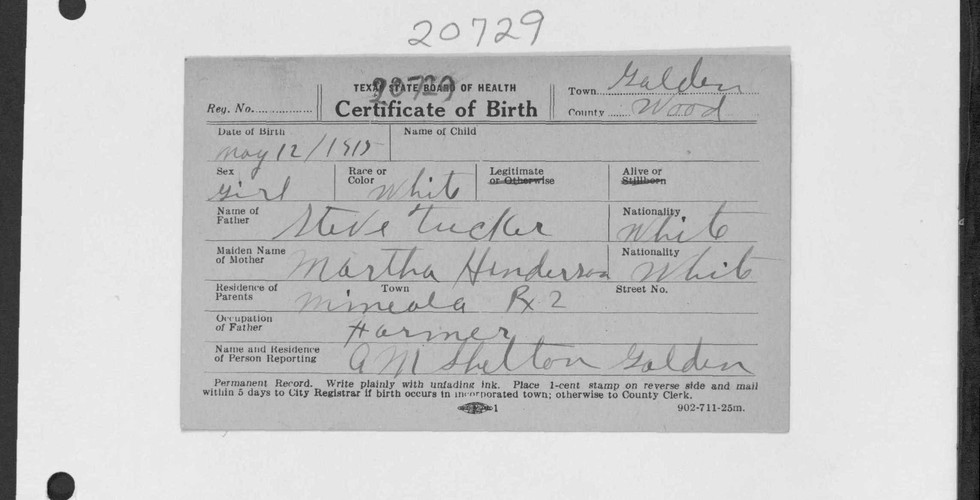 20729
TEXAS STATE BOARD OF HEALTH
20729
Reg. No.
Certificate of Birth
Town Golden
County Wood
Date of Birth Name of Child
May 12/1915
Sex Race or Color Legitimate or Otherwise Alive or Stillborn
Girl White
Name of Father Steve Tucker Nationality White
Maiden Name of Mother Martha Henderson Nationality White
Residence of Parents Town Street No.
Mineola R 2
Occupation of Father Farmer
Name and Residence of Person Reporting A M Shelton Golden
Permanent Record. Write plainly with unfading ink. Place 1-cent stamp on reverse side and mail
within 5 days to City Registrar if birth occurs in incorporated town; otherwise to County Clerk.
1 902-711-25m.